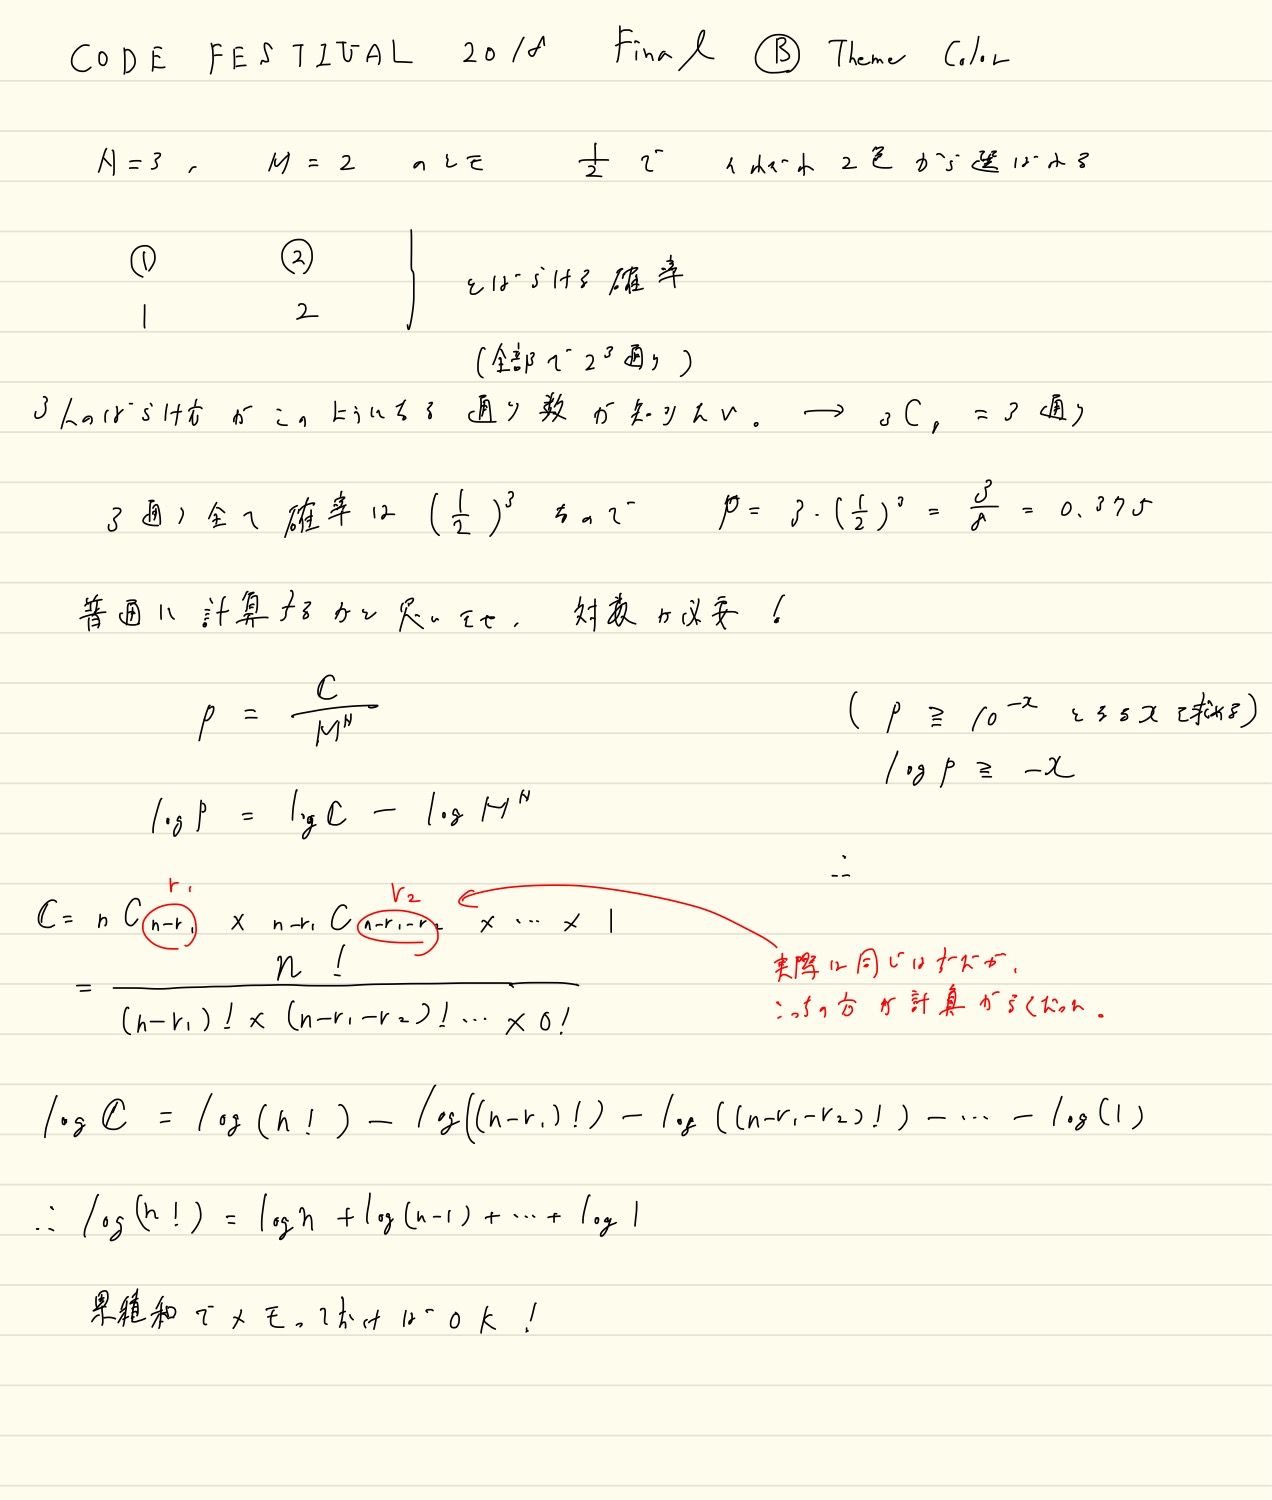 CODE FESTIVAL 2018 Final Ⓑ Theme Color
N=3, M=2 のとき 1/2 で それぞれ 2色から選ばれる
① ②
1 2
とばらける確率
(全部で 2^3 通り)
3人のばらけ方がこのようになる通り数が知りたい。 → ₃C₁ = 3通り
3通り全て確率は (1/2)^3 なので p = 3・(1/2)^3 = 3/8 = 0.375
普通に計算するかと思いきや、対数が必要!
p = C / M^N
(p ≧ 10^-x となるxを求める)
log p ≧ -x
log p = log C - log M^N
∴
r₁ r₂
C = nC n-r₁ × n-r₁C n-r₁-r₂ × … × 1
= n! / (n-r₁)! × (n-r₁-r₂)! … × 0!
実際は同じはずだが、
こっちの方が計算がらくだった。
log C = log(n!) - log((n-r₁)!) - log((n-r₁-r₂)!) - … - log(1)
∴ log(n!) = log n + log(n-1) + … + log 1
累積和でメモっておけばOK!